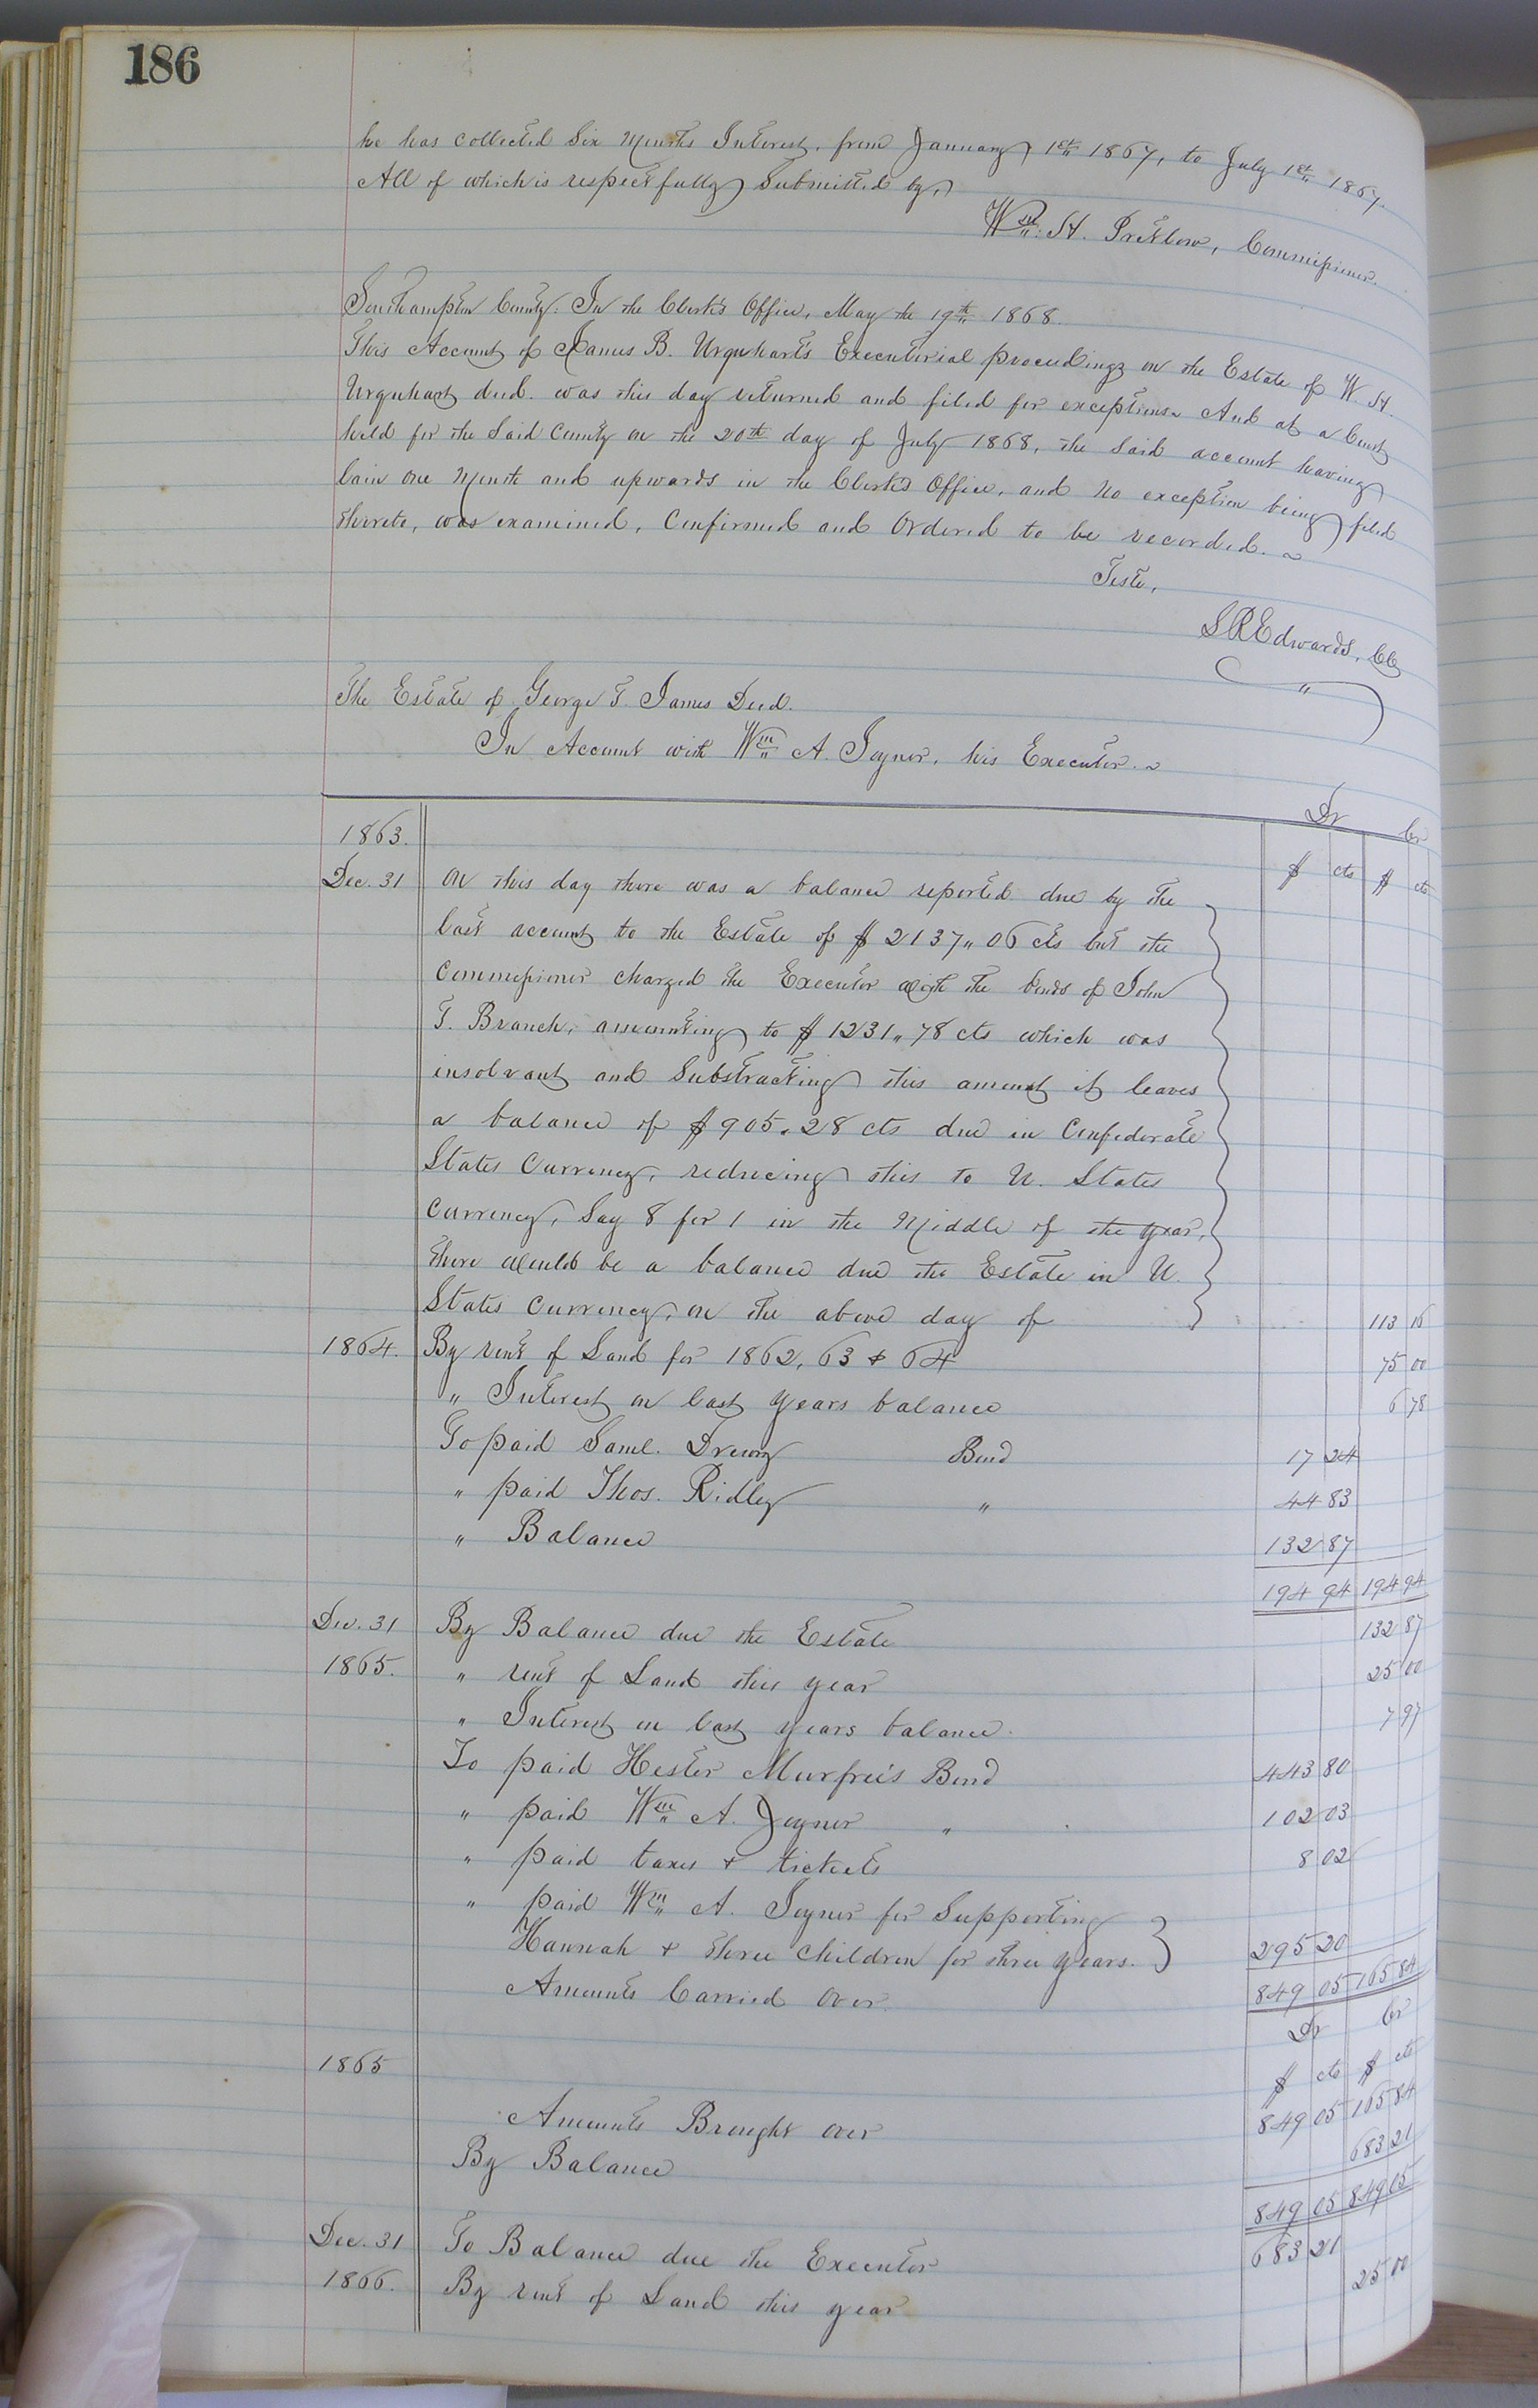 186
he has collected Six Months Interest, from January 1st 1867, to July 1st 1867.
All of which is respectfully Submitted by,
Wm. H. Pretlow, Commissioner.
Southampton County: In the Clerk's Office, May the 19th 1868.
This Account of James B. Urquharts Executorial proceedings on the Estate of W. H.
Urquhart decd. was this day returned and filed for exceptions And at a Court
held for the Said County on the 20th day of July 1868, the Said account having
lain one Month and upwards in the Clerk's Office, and no exception being filed
thereto, was examined, Confirmed and Ordered to be recorded.
Teste,
S R Edwards, CC
The Estate of George T. James Decd.
In Account with Wm A. Joyner, his Executor.
Dr Cr
1863. $ cts $ cts
Dec. 31 On this day there was a balance reported due by the
last account to the Estate of $ 2137,, 06 cts but the
Commissioner charged the Executor with the bonds of John
T. Branch, amounting to $ 1231,, 78 cts which was
insolvant and Substracting this amount it leaves
a balance of $ 905. 28 cts due in Confederate
States Currency, reducing this to U. States
Currency, Say 8 for 1 in the Middle of the year,
there would be a balance due the Estate in U.
States Currency, on the above day of 113 16
1864. By rent of Land for 1862, 63 & 64 75 00
" Interest on last years balance 6 78
To paid Saml. Drewry Bond 17 24
" paid Thos. Ridley " 44 83
" Balance 132 87
194 94 194 94
Dec. 31 By Balance due the Estate 132 87
1865. " rent of Land this year 25 00
" Interest on last years balance. 7 97
To paid Hester Murfree's Bond 443 80
" paid Wm A. Joyner " 102 03
" paid taxes & tickets 8 02
" paid Wm A. Joyner for Supporting
Hannah & three Children for three years. 295 20
Amounts Carried Over. 849 05 165 84
Dr Cr
1865 $ cts $ cts
Amounts Brought over 849 05 165 84
By Balance 683 21
849 05 849 05
Dec. 31 To Balance due the Executor 683 21
1866. By rent of Land this year 25 00